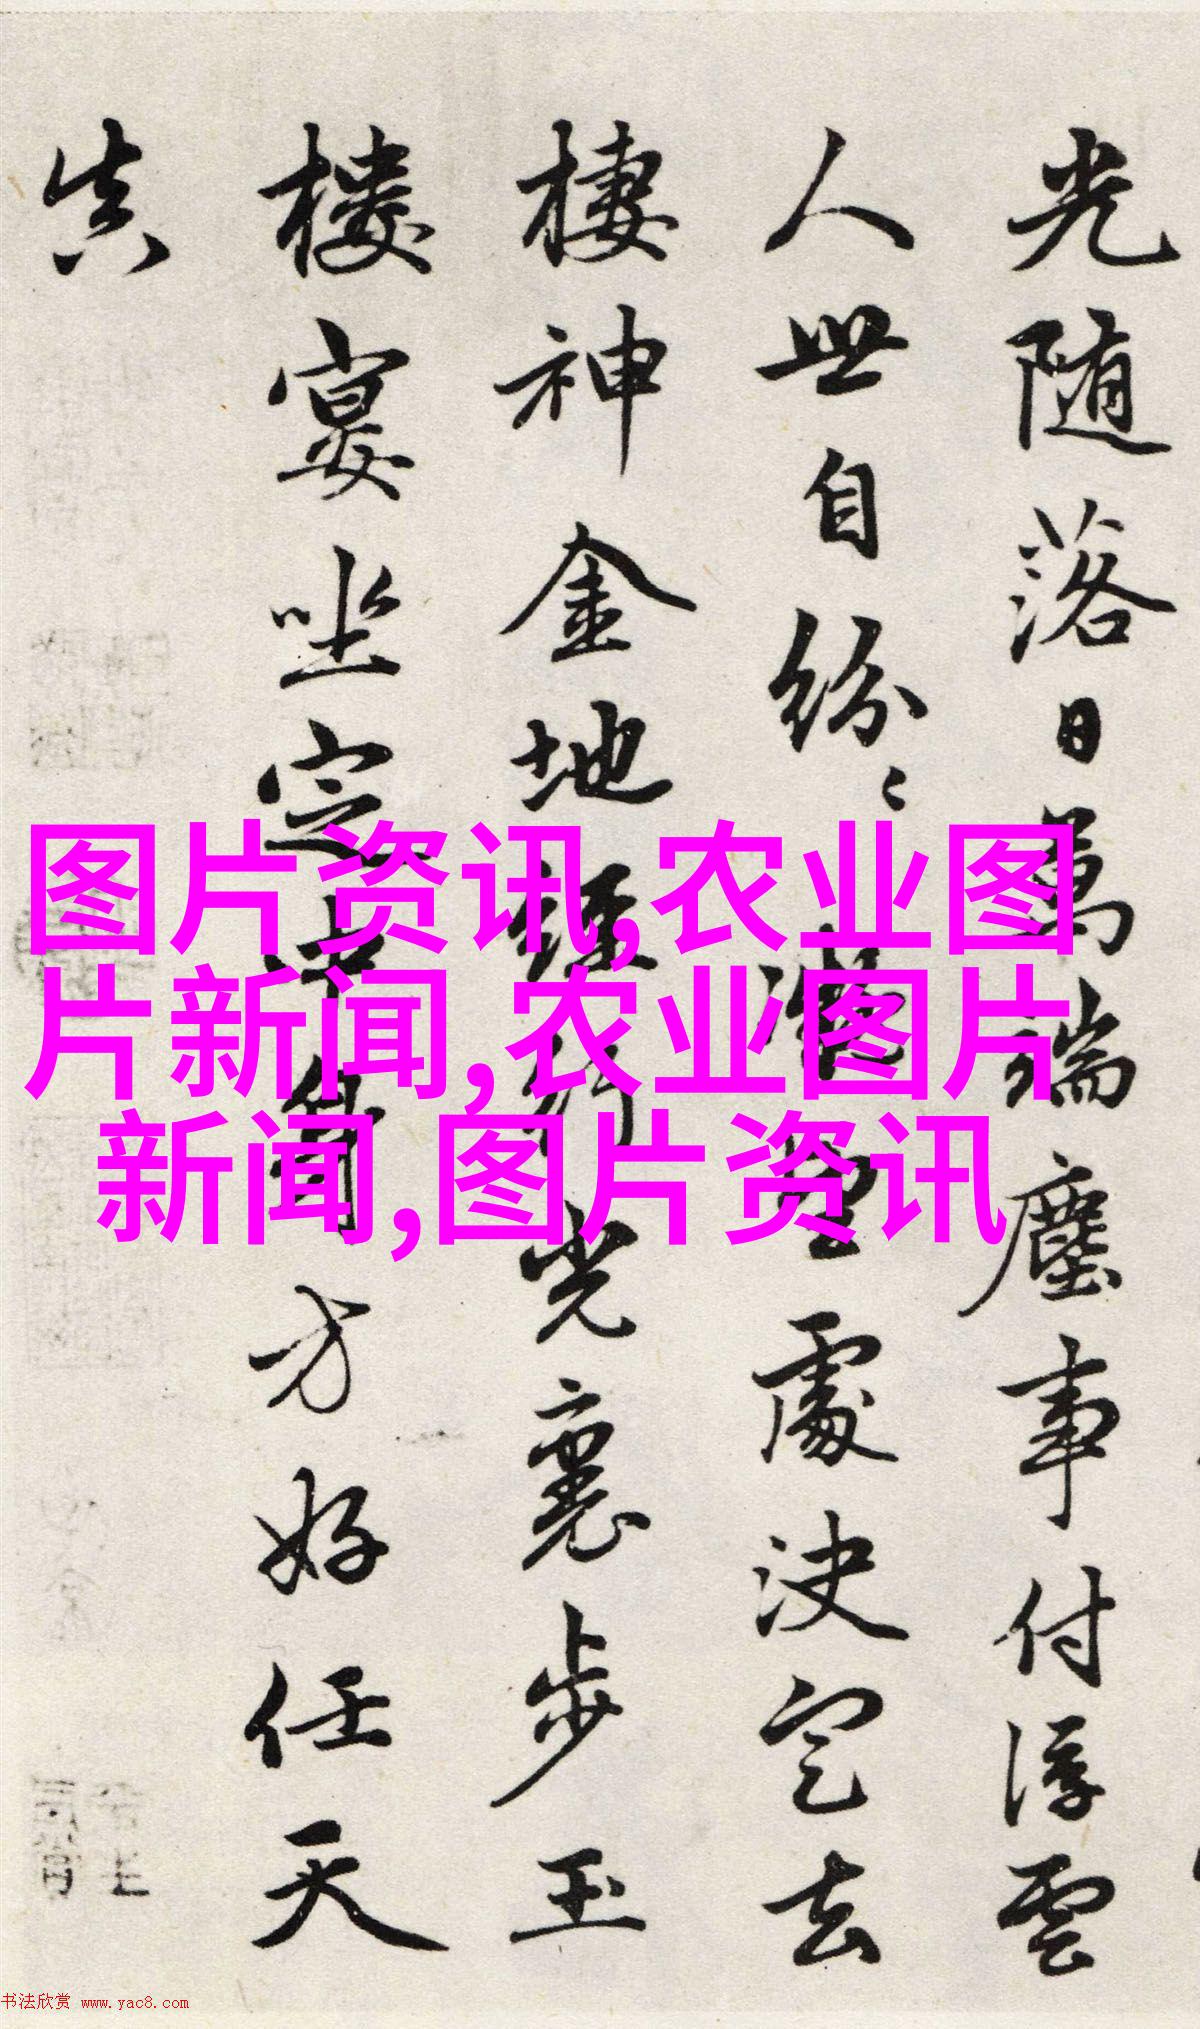 光随落日萬端塵事付浮雲
人世自紛〻處決定去
棲神金地經行光裏步玉
楼宴坐定中身方好任天
真
图片资讯,农业图
片新闻,农业图片
新闻,图片资讯
书法欣赏 www.yac8.com